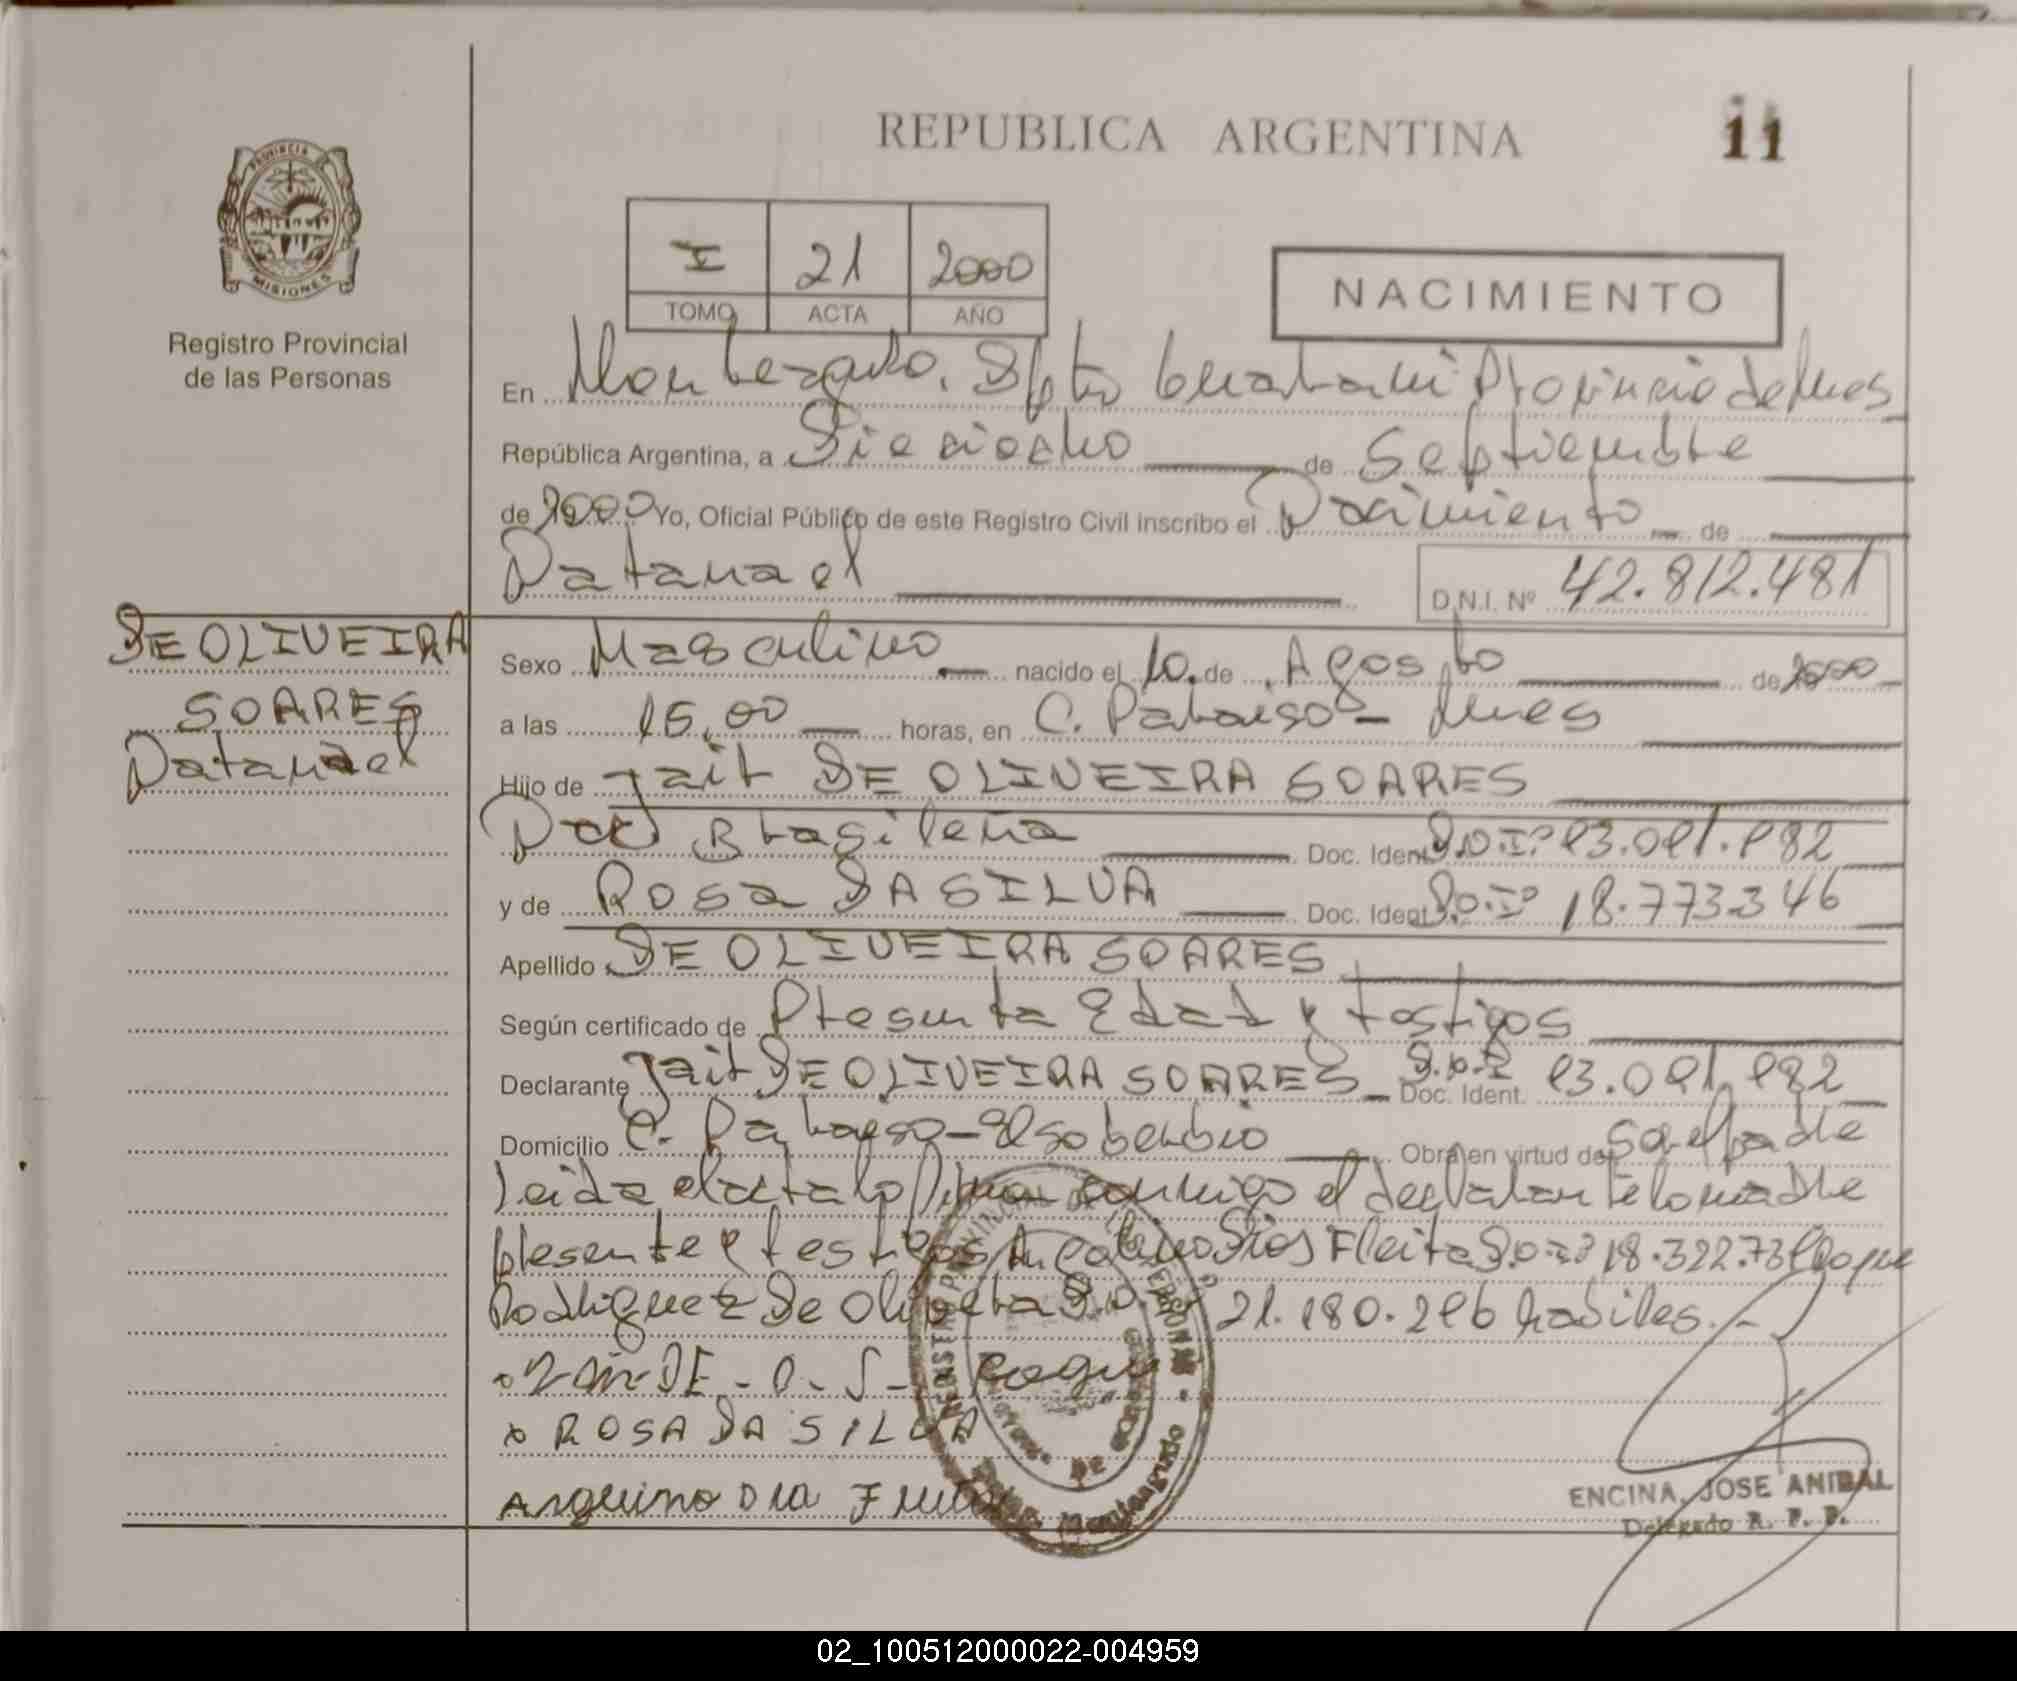 REPUBLICA ARGENTINA
11
PROVINCIA DE
MISIONES
Registro Provincial
de las Personas
I 21 2000
TOMO ACTA AÑO
NACIMIENTO
En Monteagudo. Dpto Guarani Provincia de Mnes
República Argentina, a Dieciocho de Septiembre
de 2000 Yo, Oficial Público de este Registro Civil inscribo el Nacimiento de
Natanael
D.N.I. Nº 42.812.481
DE OLIVEIRA
SOARES
Natanael
Sexo Masculino nacido el 10 de Agosto de 2000
a las 15,00 horas, en C. Paraiso - Mnes
Hijo de Jair DE OLIVEIRA SOARES
Nac Brasileña Doc. Ident. D.N.I: 93.091.982
y de Rosa DA SILVA Doc. Ident. D.N.I: 18.773.346
Apellido DE OLIVEIRA SOARES
Según certificado de Presunta Edad y testigos
Declarante Jair DE OLIVEIRA SOARES D.N.I Doc. Ident. 93.091.982
Domicilio C. Paraiso - El Soberbio Obra en virtud de Ser el padre
Leida el acta la firman conmigo el declarante la madre
presente y testigos Dios Fleita D.N.I: 18.322.739 Roque
Rodriguez De Olivera D.N.I: 21.180.296 habiles.-
DE - O - S - Roque
x ROSA DA SILVA
ENCINA, JOSE ANIBAL
Delegado R. P. P.
02_100512000022-004959